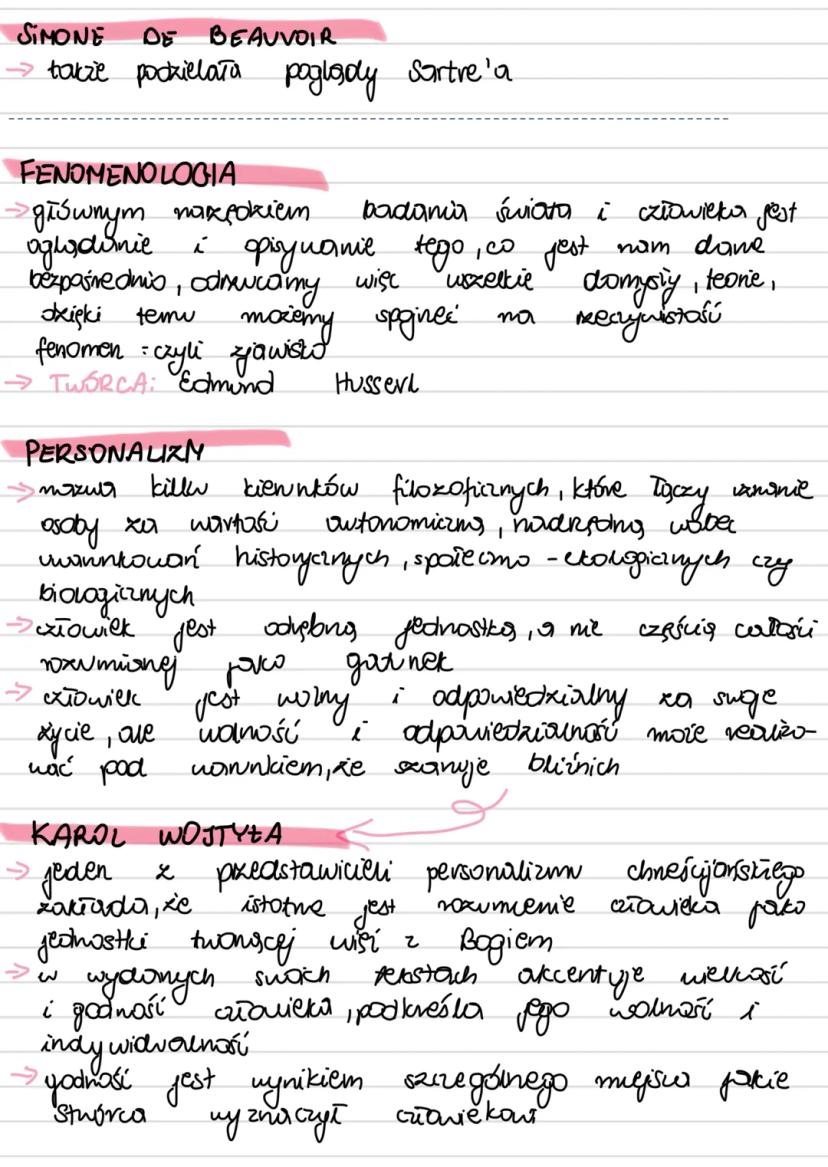 SIMONE DE BEAUVOIR
→ także podzielała poglądy Sartre'a
FENOMENOLOGIA
→ głównym narzędziem badania świata i człowieka jest
oglądanie i opisywanie tego, co jest nam dane
bezpośrednio, odrzucamy więc wszelkie domysły, teorie,
dzięki temu możemy spojrzeć na rzeczywistość
fenomen = czyli zjawisko
→ TWÓRCA: Edmund Husserl
PERSONALIZM
→ nazwa kilku kierunków filozoficznych, które łączy uznanie
osoby za wartość autonomiczną, nadrzędną wobec
uwarunkowań historycznych, społeczno-ekologicznych czy
biologicznych
→ człowiek jest odrębną jednostką, a nie częścią całości
rozumianej jako gatunek
→ człowiek jest wolny i odpowiedzialny za swoje
życie, ale wolność i odpowiedzialność może realizo-
wać pod warunkiem, że szanuje bliźnich
KAROL WOJTYŁA
→ jeden z przedstawicieli personalizmu chrześcijańskiego
zakłada, że istotne jest rozumienie człowieka jako
jednostki tworzącej więź z Bogiem
→ w wydanych swoich tekstach akcentuje wielkość
i godność człowieka, podkreśla jego wolność i
indywidualność
→ godność jest wynikiem szczególnego miejsca jakie
Stwórca wyznaczył człowiekowi